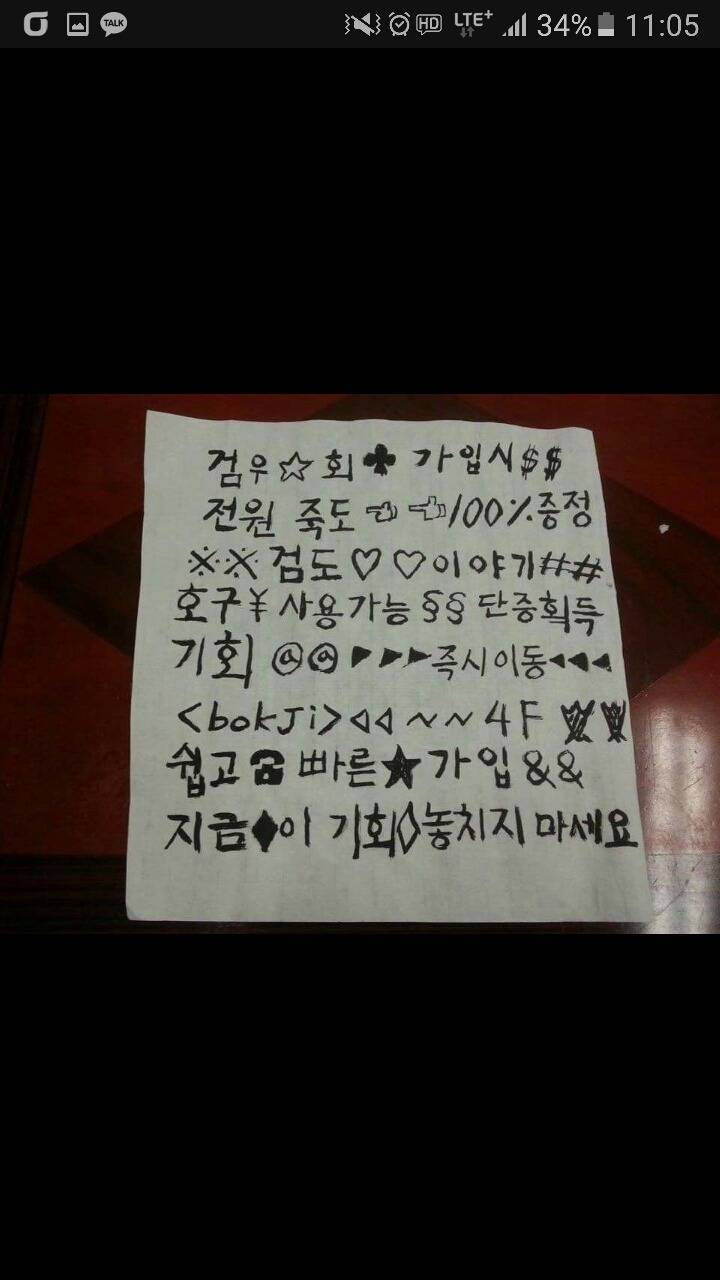 TALK HD LTE+ 34% 11:05
검우☆회♣ 가입시$$
전원 죽도☜☜100%증정
※※검도♡♡이야기##
호구¥사용가능§§단증획득
기회@@▶▶▶즉시이동◀◀◀
<bokJi>◁◁~~4F
쉽고☎빠른★가입&&
지금◆이 기회◇놓치지 마세요